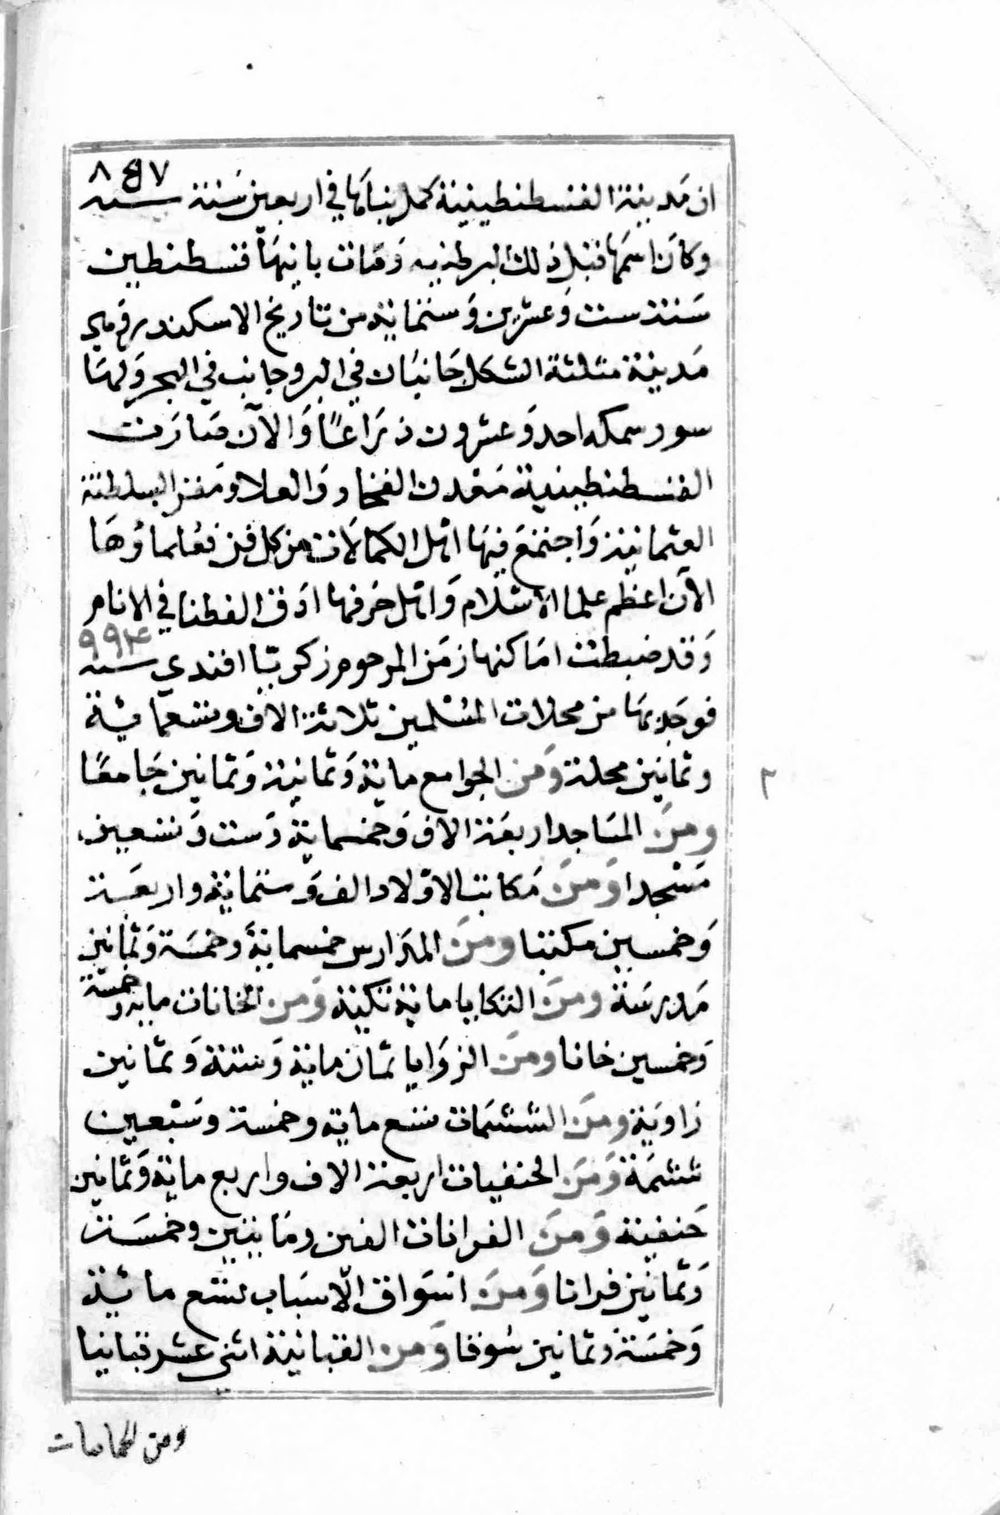 ان مدينة القسطنطينية كمل بناها في اربعين سنة سنه ٨٤٧
وكان اسمها قبل ذلك البرطنيه ومات بانيها قسطنطين
سنة ست وعشرين وستماية من تاريخ الاسكندر وهي
مدينة مثلثة الشكل جانبان في البر وجانب في البحر ولها
سور سمكه احد وعشرون ذراعا والآن صارت
القسطنطينية معدن الفخار والعلا ومقر السلطنة
العثمانية واجتمع فيها اهل الكمالات من كل فن فعلماؤها
الآن اعظم علما الاسلام واهل حرفها ادق الفطنا في الانام
وقد ضبطت اماكنها زمن المرحوم زكريا افندي سنه ٩٩٤
فوجد بها من محلات المسلمين ثلاثة الاف وتسعمائة
وثمانين محلة ومن الجوامع ماية وثمانية وثمانين جامعا
ومن المساجد اربعة الاف وخمسماية وست وتسعين
مسجدا ومن مكاتب الاولاد الف وستماية واربعة
وخمسين مكتبا ومن المدارس خمسماية وخمسة وثمانين
مدرسة ومن التكايا ماية تكية ومن الخانات مايه وخمسة
وخمسين خانا ومن الزوايا ثمان ماية وستة وثمانين
زاوية ومن الششمات تسع ماية وخمسة وسبعين
ششمة ومن الحنفيات اربعة الاف واربع ماية وثمانين
حنفية ومن الفرانات الفين ومايتين وخمسة
وثمانين فرانا ومن اسواق الاسباب تسع مائة
وخمسة وثمانين سوقا ومن القبانية اثني عشر قبانيا
ومن الحمامات